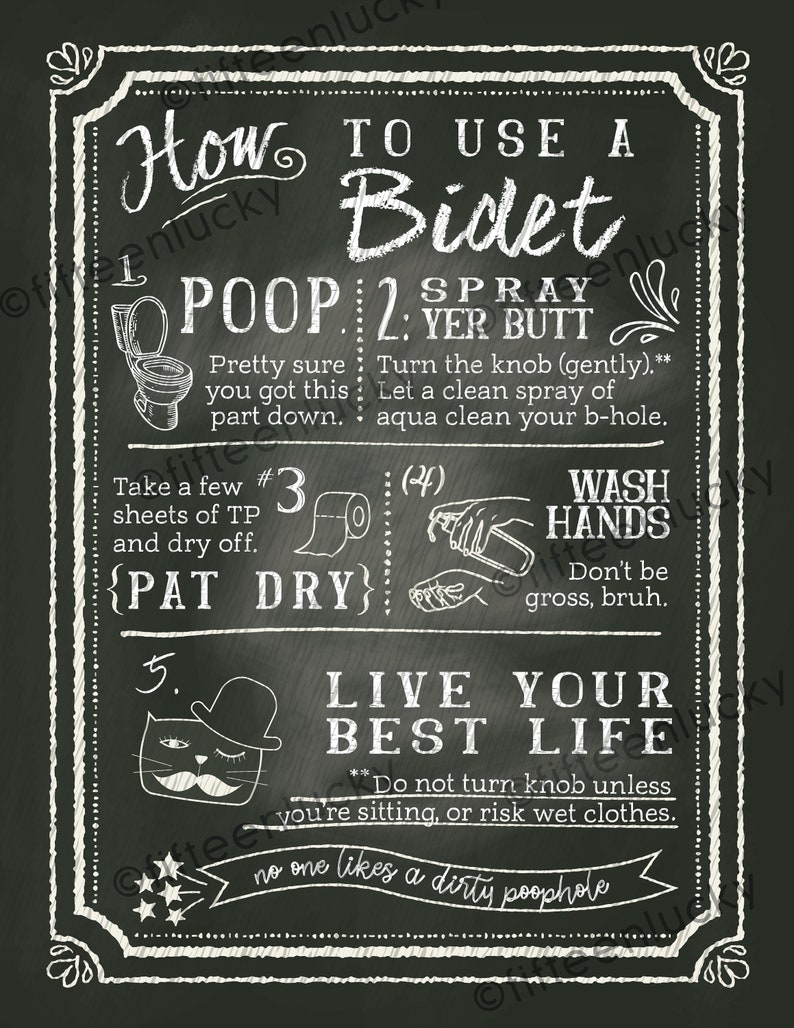 How TO USE A
Bidet
1
POOP.
Pretty sure
you got this
part down.
2: SPRAY
YER BUTT
Turn the knob (gently).**
Let a clean spray of
aqua clean your b-hole.
#3
Take a few
sheets of TP
and dry off.
{PAT DRY}
(4)
WASH
HANDS
Don't be
gross, bruh.
5.
LIVE YOUR
BEST LIFE
**Do not turn knob unless
you're sitting, or risk wet clothes.
no one likes a dirty poophole
©fifteenlucky
©fifteenlucky
©fifteenlucky
©fifteenlucky
©fifteenlucky
©fifteenlucky
©fifteenlucky
©fifteenlucky
©fifteenlucky